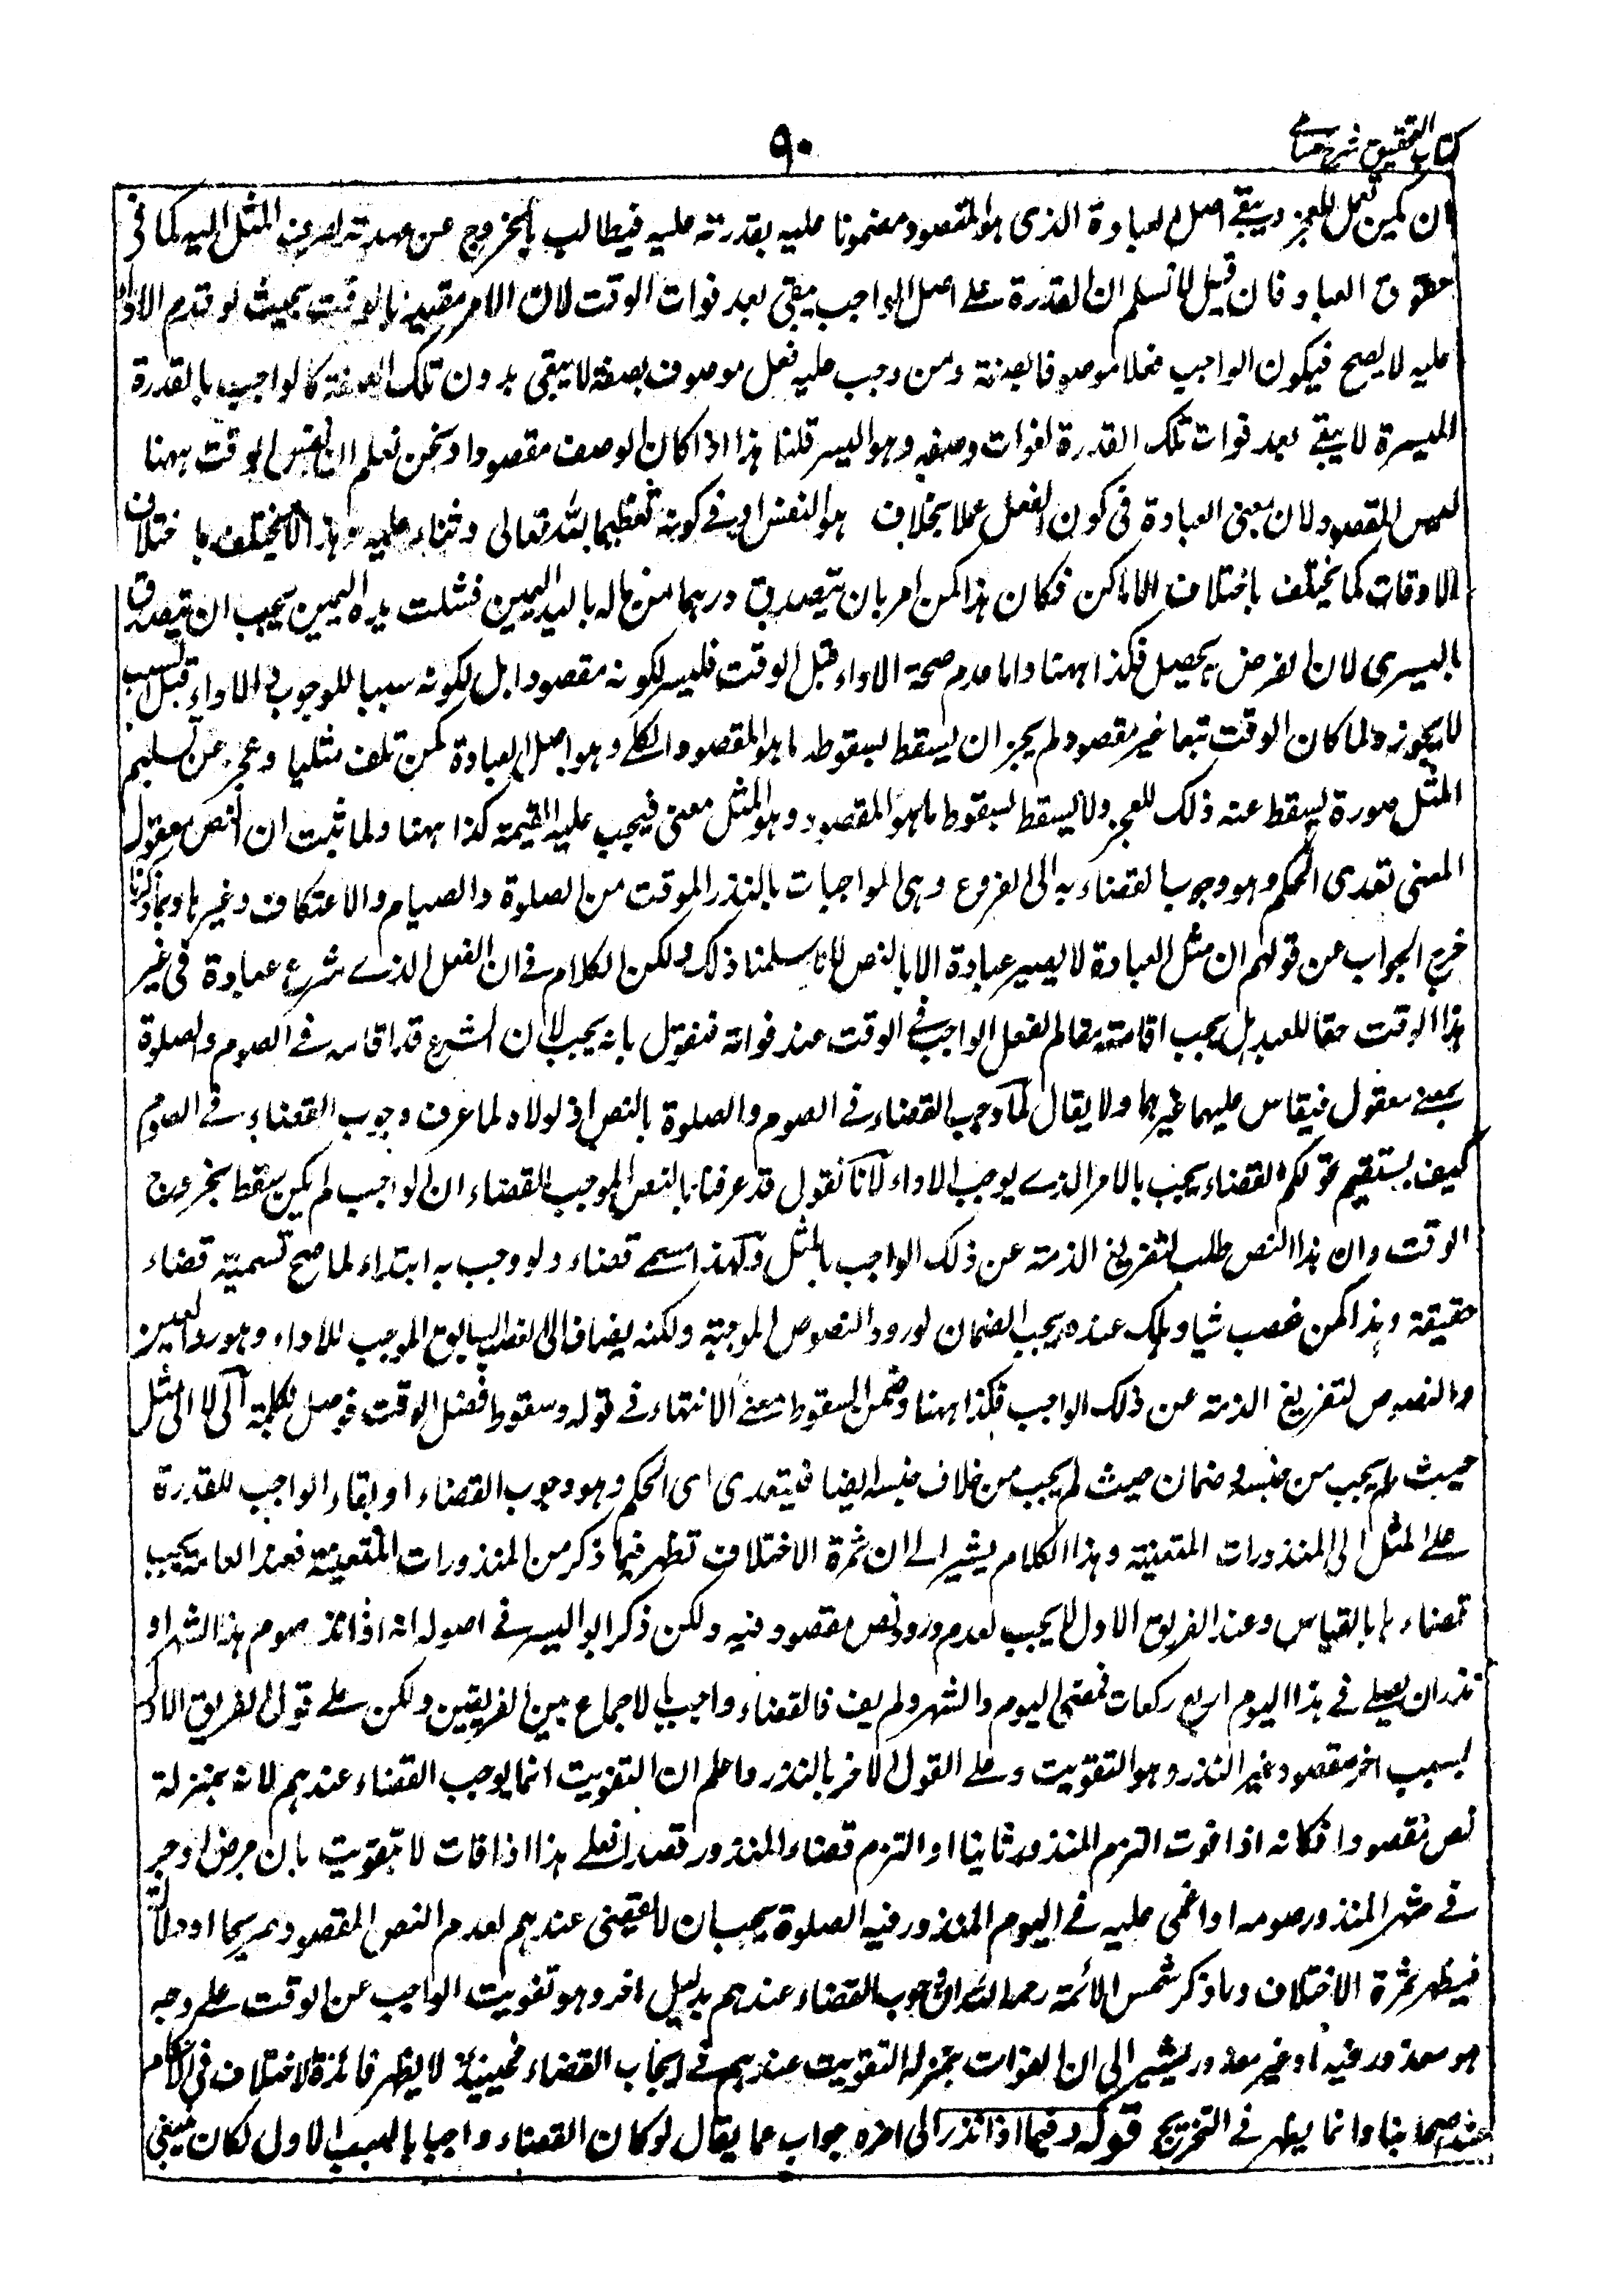 كتاب التحقيق شرح حسامي
٩٠
ان لم يكن تعمل للعجز ويبقى اصل العبادة الذى هو المقصود مضمونا عليه بقدرته عليه فيطالب بالخروج عن عهدته بصرف المثل اليه كما فى
حقوق العباد فان قيل لا نسلم ان القدرة على اصل الواجب يبقى بعد فوات الوقت لان الامر مقيد بالوقت بحيث لو قدم الاداء
عليه لا يصح فيكون الواجب فعلا موصوفا بصفة ومن وجب عليه فعل موصوف بصفة لا يبقى بدون تلك الصفة كالواجب بالقدرة
الميسرة لا يبقى بعد فوات تلك القدرة لفوات وصفه وهو اليسر قلنا هذا اذا كان الوصف مقصودا ونحن نعلم ان نفس الوقت ههنا
ليس المقصود لان معنى العبادة فى كون الفعل عملا بخلاف هو النفس او فى كونه تعظيما لله تعالى وثناء عليه وهذا لا يختلف باختلاف
الاوقات كما يختلف باختلاف الاماكن فكان هذا كمن امر بان يتصدق درهما من ماله باليد اليمين فشلت يده اليمين يجب ان يتصدق
باليسرى لان الغرض به يحصل فكذا ههنا واما عدم صحة الاداء قبل الوقت فليس لكونه مقصودا بل لكونه سببا للوجوب والاداء قبل السبب
لا يجوز ولما كان الوقت تبعا غير مقصود لم يجز ان يسقط بسقوطه ما هو المقصود الكلى وهو اصل العبادة كمن تلف مثليا وعجز عن تسليم
المثل صورة يسقط عنه ذلك للعجز ولا يسقط بسقوطه ما هو المقصود وهو المثل معنى فيجب عليه القيمة كذا ههنا ولما ثبت ان النص معقول
المعنى تعدى الحكم وهو وجوب القضاء به الى الفروع وهى الواجبات بالنذر الموقت من الصلوة والصيام والاعتكاف وغيرها وبما ذكرنا
خرج الجواب عن قولهم ان مثل العبادة لا يصير عبادة الا بالنص لانا سلمنا ذلك ولكن الكلام فى ان الفعل الذى شرع عبادة فى غير
هذا الوقت حقا للعبد هل يجب اقامته مقام الفعل الواجب فى الوقت عند فواته فنقول بانه يجب لان الشرع قد اقامه فى الصوم والصلوة
بمعنى معقول فيقاس عليهما غيرهما ولا يقال لما وجب القضاء فى الصوم والصلوة بالنص اذ لولاه لما عرف وجوب القضاء فى الصوم
كيف يستقيم قولكم القضاء يجب بالامر الذى يوجب الاداء لانا نقول قد عرفنا بالنص الموجب للقضاء ان الواجب لم يكن سقط بخروج
الوقت وان هذا النص طلب لتفريغ الذمة عن ذلك الواجب بالمثل ولهذا سمى قضاء ولو وجب به ابتداء لما صح تسميته قضاء
حقيقة وهذا كمن غصب شيا وهلك عنده يجب الضمان لورود النصوص الموجبة ولكنه يضاف الى الغصب السابق الموجب للاداء وهو رد العين
والنصوص لتفريغ الذمة عن ذلك الواجب فكذا ههنا وضمن السقوط معنى الانتهاء فى قوله وسقوط فضل الوقت فوصل بكلمة الى لا الى مثل
حيث لم يجب من جنسه ضمان حيث لم يجب من خلاف جنسه ايضا فيتعدى اى الحكم وهو وجوب القضاء او بقاء الواجب للقدرة
على المثل الى المنذورات المتعينة وهذا الكلام يشير الى ان ثمرة الاختلاف تظهر فيما ذكر من المنذورات المتعينة فعند العامة يجب
قضاءها بالقياس وعند الفريق الاول لا يجب لعدم ورود نص مقصود فيه ولكن ذكر ابو اليسر فى اصوله انه اذا نذر صوم هذا الشهر او
نذر ان يصلى فى هذا اليوم اربع ركعات فمضى اليوم والشهر ولم يف فالقضاء واجب بالاجماع بين الفريقين ولكن على قول الفريق الاول
بسبب اخر مقصود غير النذر وهو التفويت وعلى القول الاخر بالنذر واعلم ان التفويت انما يوجب القضاء عندهم لانه بمنزلة
نص مقصودا فكانه اذا فوت التزم المنذور ثانيا او التزم قضاء المنذور قصدا فعلى هذا اذا فات لا بتفويت بان مرض او جن
فى شهر المنذور صومه او اغمى عليه فى اليوم المنذور فيه الصلوة يجب ان لا يقضى عندهم لعدم النص المقصود صريحا او دلالة
فيظهر ثمرة الاختلاف وما ذكر شمس الائمة رحمه الله ان وجوب القضاء عندهم بدليل اخر وهو تفويت الواجب عن الوقت على وجه
هو معذور فيه او غير معذور يشير الى ان الفوات بمنزلة التفويت عندهم فى ايجاب القضاء فحينئذ لا يظهر فائدة الاختلاف فى الاحكام
عند اصحابنا وانما يظهر فى التخريج قوله وفيما اذا نذر الى اخره جواب عما يقال لو كان القضاء واجبا بالسبب الاول لكان ينبغى